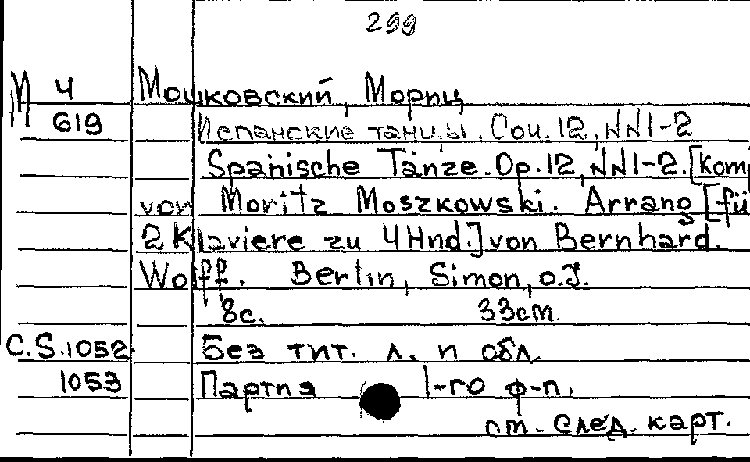 299
М Ч Мошковский, Мориц
619 Испанские танцы. Соч. 12, NN1-2
Spanische Tänze. Op. 12, NN1-2. [Komp
von Moritz Moszkowski. Arrang [fü
2 Klaviere zu 4 Hnd.] von Bernhard.
Wolff. Berlin, Simon, o.J.
8с. 33cm
C.S.1052 Без тит. л. и обл.
1053 Партия 1-го ф-п.
см. след. карт.